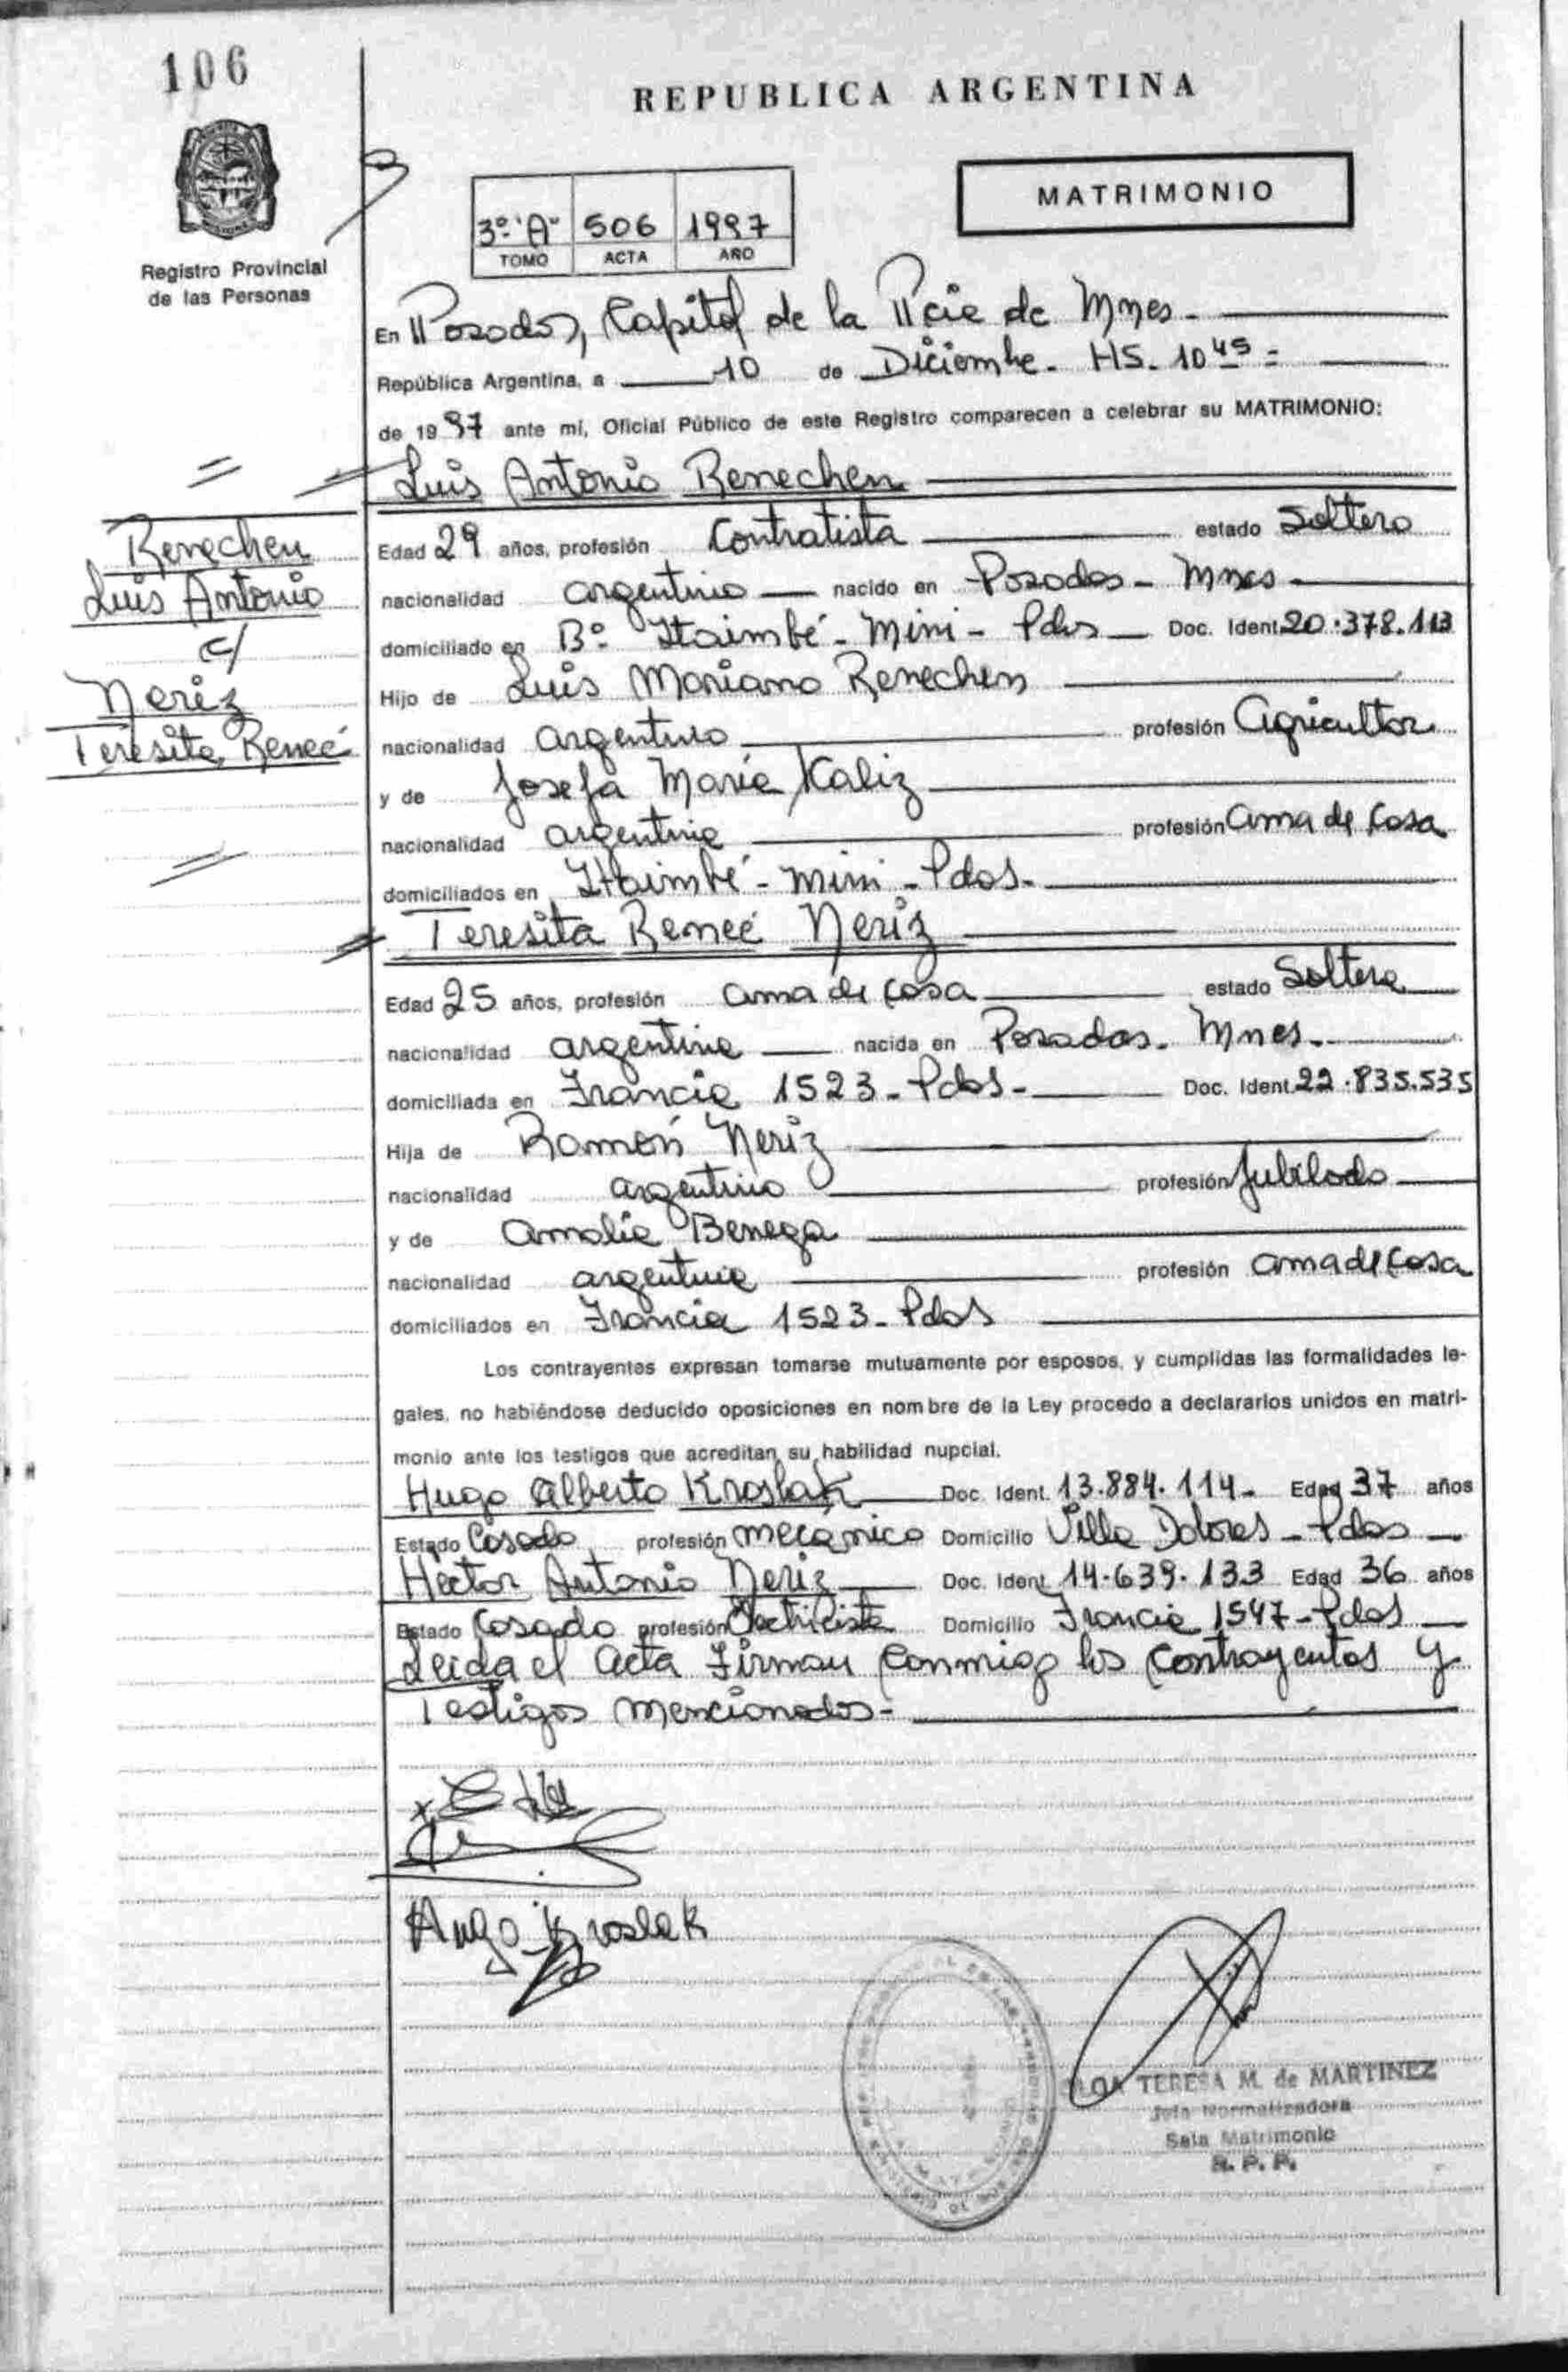 106
REPUBLICA ARGENTINA
MATRIMONIO
3º "A" 506 1997
TOMO ACTA AÑO
Registro Provincial
de las Personas
En Posadas, Capital de la Pcie de Mnes.
República Argentina, a 10 de Diciembre. HS. 10 45 =
de 1997 ante mí, Oficial Público de este Registro comparecen a celebrar su MATRIMONIO:
Luis Antonio Renechen
Renechen
Luis Antonio
c/
Neriz
Teresita Reneé
Edad 29 años, profesión Contratista estado Soltero
nacionalidad argentino nacido en Posadas - Mnes
domiciliado en Bº Itaimbé - Mini - Pdas Doc. Ident. 20.378.113
Hijo de Luis Mariano Renechen
nacionalidad argentino profesión agricultor
y de Josefa María Kaliz
nacionalidad argentina profesión ama de casa
domiciliados en Itaimbé - Mini - Pdas.
Teresita Reneé Neriz
Edad 25 años, profesión ama de casa estado Soltera
nacionalidad argentina nacida en Posadas. Mnes.
domiciliada en Francia 1523 - Pdas - Doc. Ident. 22.835.535
Hija de Ramón Neriz
nacionalidad argentino profesión Jubilado
y de Amalia Benega
nacionalidad argentina profesión ama de casa
domiciliados en Francia 1523 - Pdas
Los contrayentes expresan tomarse mutuamente por esposos, y cumplidas las formalidades le-
gales, no habiéndose deducido oposiciones en nombre de la Ley procedo a declararlos unidos en matri-
monio ante los testigos que acreditan su habilidad nupcial.
Hugo Alberto Kroslak Doc. Ident. 13.884.114 - Edad 37 años
Estado Casado profesión mecánico Domicilio Villa Dolores - Pdas
Hector Antonio Neriz Doc. Ident. 14.639.133 Edad 36 años
Estado Casado profesión Electricista Domicilio Francia 1547 - Pdas
Leida el acta Firman conmigo los contrayentes y
Testigos mencionados -
Hugo Kroslak
TERESA M. de MARTINEZ
Jefa Normalizadora
Sala Matrimonio
R. P. P.